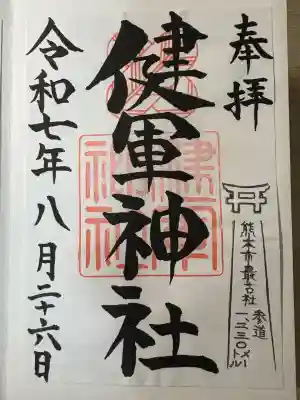 奉拝
健軍神社
令和七年八月二十六日
熊本市最古社
参道
一、二三〇メートル